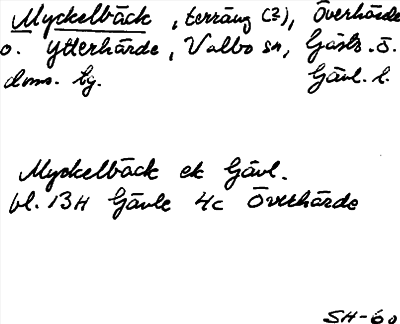 Myckelbäck, terräng (?), Överhärde
o. Ytterhärde, Valbo sn, Gästr. ö.
doms. tg. Gävl. l.
Myckelbäck ek Gävl.
bl. 13H Gävle 4c Överhärde
SH-60